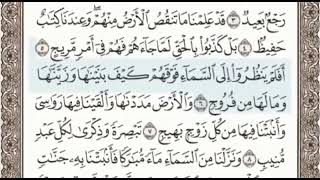 رَجْعٌۢ بَعِيدٌ ٣ قَدْ عَلِمْنَا مَا تَنقُصُ ٱلْأَرْضُ مِنْهُمْ ۖ وَعِندَنَا كِتَٰبٌ
حَفِيظٌۢ ٤ بَلْ كَذَّبُوا۟ بِٱلْحَقِّ لَمَّا جَآءَهُمْ فَهُمْ فِىٓ أَمْرٍ مَّرِيجٍ ٥
أَفَلَمْ يَنظُرُوٓا۟ إِلَى ٱلسَّمَآءِ فَوْقَهُمْ كَيْفَ بَنَيْنَٰهَا وَزَيَّنَّٰهَا
وَمَا لَهَا مِن فُرُوجٍ ٦ وَٱلْأَرْضَ مَدَدْنَٰهَا وَأَلْقَيْنَا فِيهَا رَوَٰسِىَ
وَأَنۢبَتْنَا فِيهَا مِن كُلِّ زَوْجٍۭ بَهِيجٍ ٧ تَبْصِرَةً وَذِكْرَىٰ لِكُلِّ عَبْدٍ
مُّنِيبٍ ٨ وَنَزَّلْنَا مِنَ ٱلسَّمَآءِ مَآءً مُّبَٰرَكًا فَأَنۢبَتْنَا بِهِۦ جَنَّٰتٍ